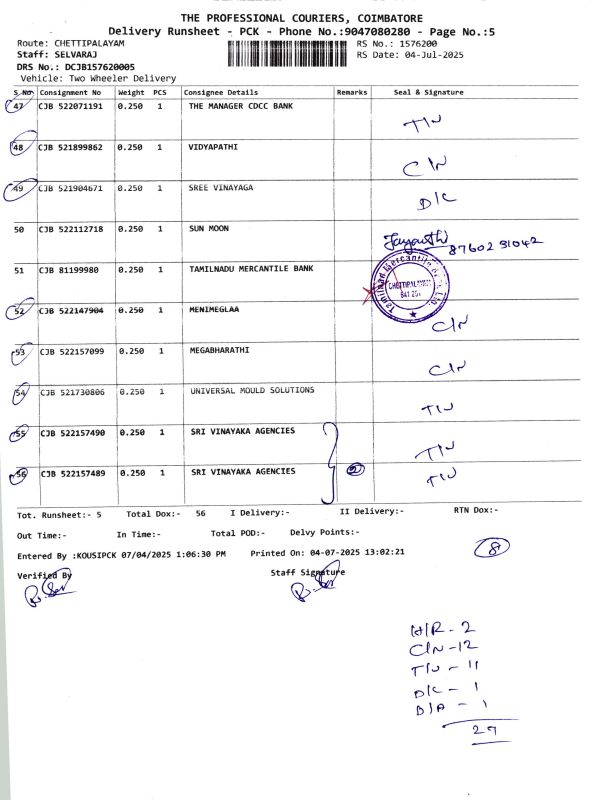 THE PROFESSIONAL COURIERS, COIMBATORE
Delivery Runsheet - PCK - Phone No.:9047080280 - Page No.:5
Route: CHETTIPALAYAM RS No.: 1576200
Staff: SELVARAJ RS Date: 04-Jul-2025
DRS No.: DCJB157620005
Vehicle: Two Wheeler Delivery
S No Consignment No Weight PCS Consignee Details Remarks Seal & Signature
47 CJB 522071191 0.250 1 THE MANAGER CDCC BANK
T/N
48 CJB 521899862 0.250 1 VIDYAPATHI
C/N
49 CJB 521904671 0.250 1 SREE VINAYAGA
D/C
50 CJB 522112718 0.250 1 SUN MOON
Jayanthi
87602 31042
51 CJB 81199980 0.250 1 TAMILNADU MERCANTILE BANK
Tamilnad Mercantile Bank Ltd.
CHETTIPALAYAM
52 CJB 522147904 0.250 1 MENIMEGLAA
C/N
53 CJB 522157099 0.250 1 MEGABHARATHI
C/N
54 CJB 521730806 0.250 1 UNIVERSAL MOULD SOLUTIONS
T/N
55 CJB 522157490 0.250 1 SRI VINAYAKA AGENCIES
T/N
56 CJB 522157489 0.250 1 SRI VINAYAKA AGENCIES 2
T/N
Tot. Runsheet:- 5 Total Dox:- 56 I Delivery:- II Delivery:- RTN Dox:-
Out Time:- In Time:- Total POD:- Delvy Points:-
Entered By :KOUSIPCK 07/04/2025 1:06:30 PM Printed On: 04-07-2025 13:02:21
8
Verified By Staff Signature
H/R - 2
C/N - 12
T/N - 11
D/C - 1
D/A - 1
27